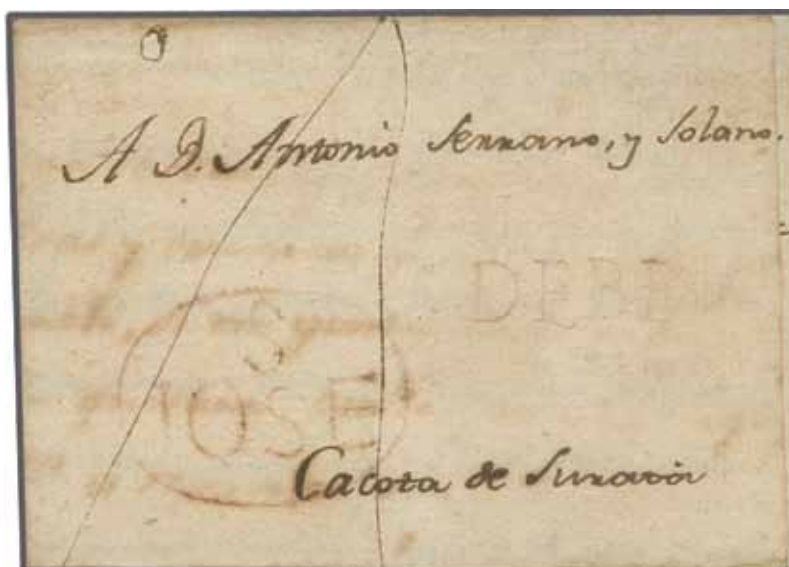 A D. Antonio Serrano, y Solano.
DEBE
S
JOSE
Cacota de Surata